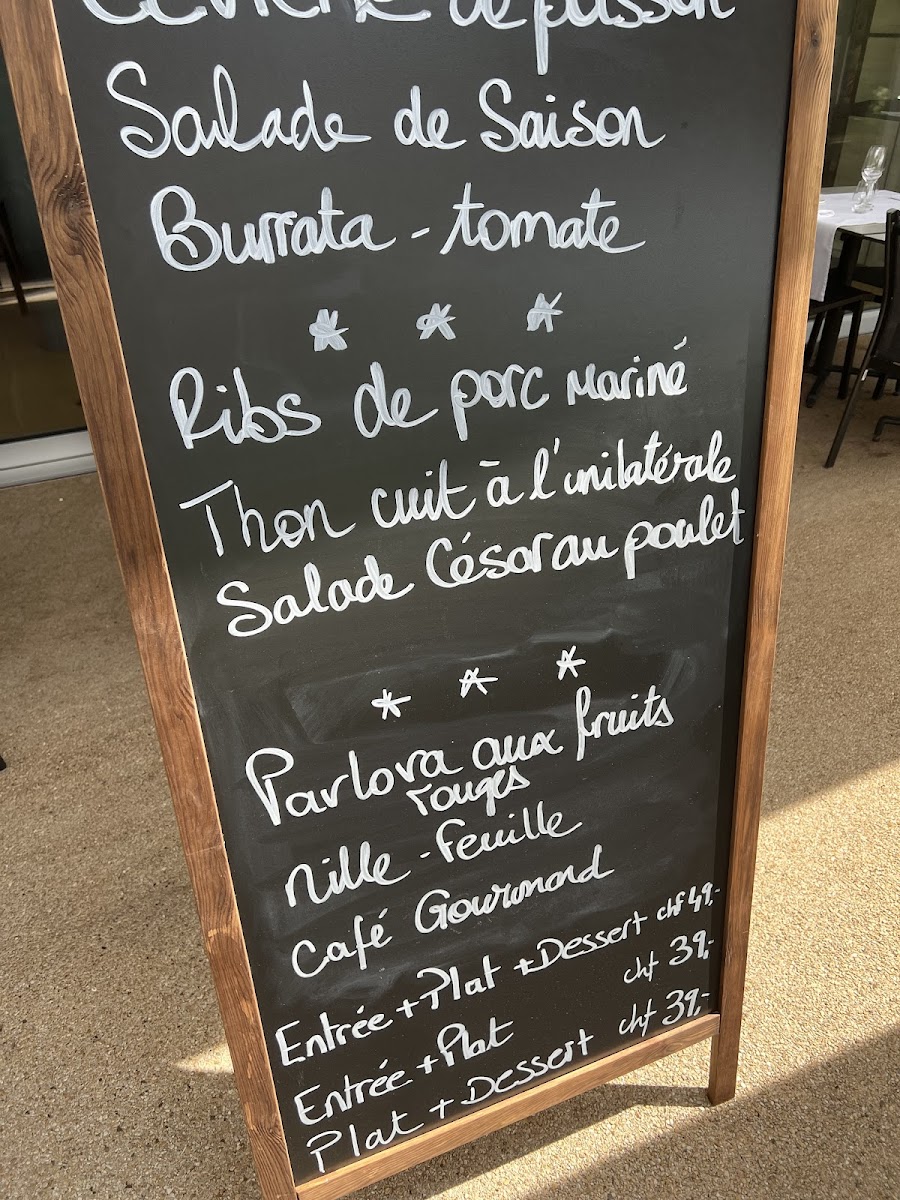 Ceviche de poisson
Salade de Saison
Burrata - tomate
* * *
Ribs de porc Mariné
Thon cuit à l'unilatérale
Salade César au poulet
* * *
Parlova aux fruits
rouges
Mille-Feuille
Café Gourmand
Entrée + Plat + Dessert chf 49,-
Entrée + Plat chf 39,-
Plat + Dessert chf 39,-